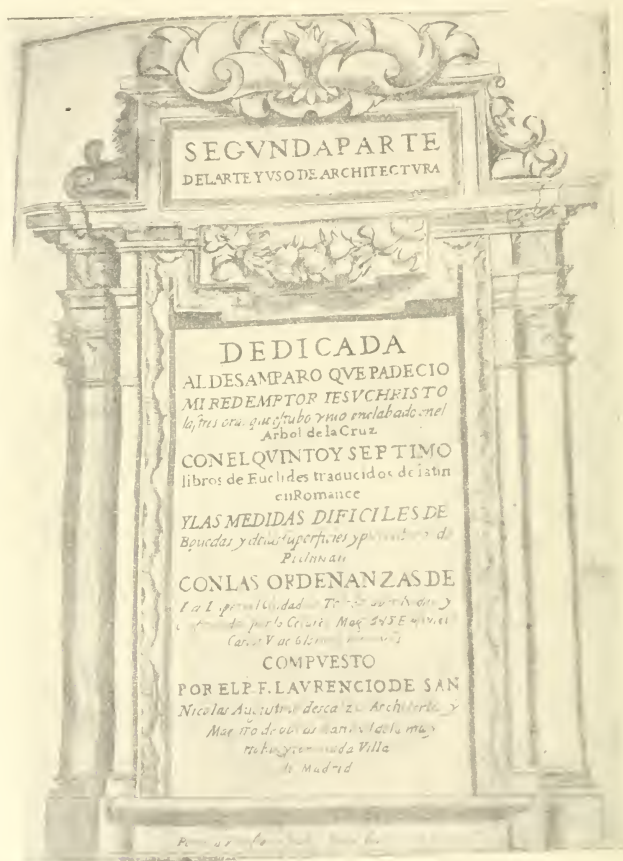 SEGVNDAPARTE
DELARTE Y VSO DE ARCHITECTVRA
DEDICADA
AL DESAMPARO QVE PADECIO
MI REDEMPTOR IESVCHRISTO
las tres que estubo enclabado enel
Arbol de la Cruz
CONEL QVINTO Y SEPTIMO
libros de Euclides traducidos de latin
enRomance
Y LAS MEDIDAS DIFICILES DE
Bouedas y delas superficies y de
CONLAS ORDENANZAS DE
La
por la Mag.
Carlos V de
COMPVESTO
POR EL P. F. LAVRENCIO DE SAN
Nicolas Augustino descalzo Architecto y
Maestro de obras dela muy
Villa
de Madrid